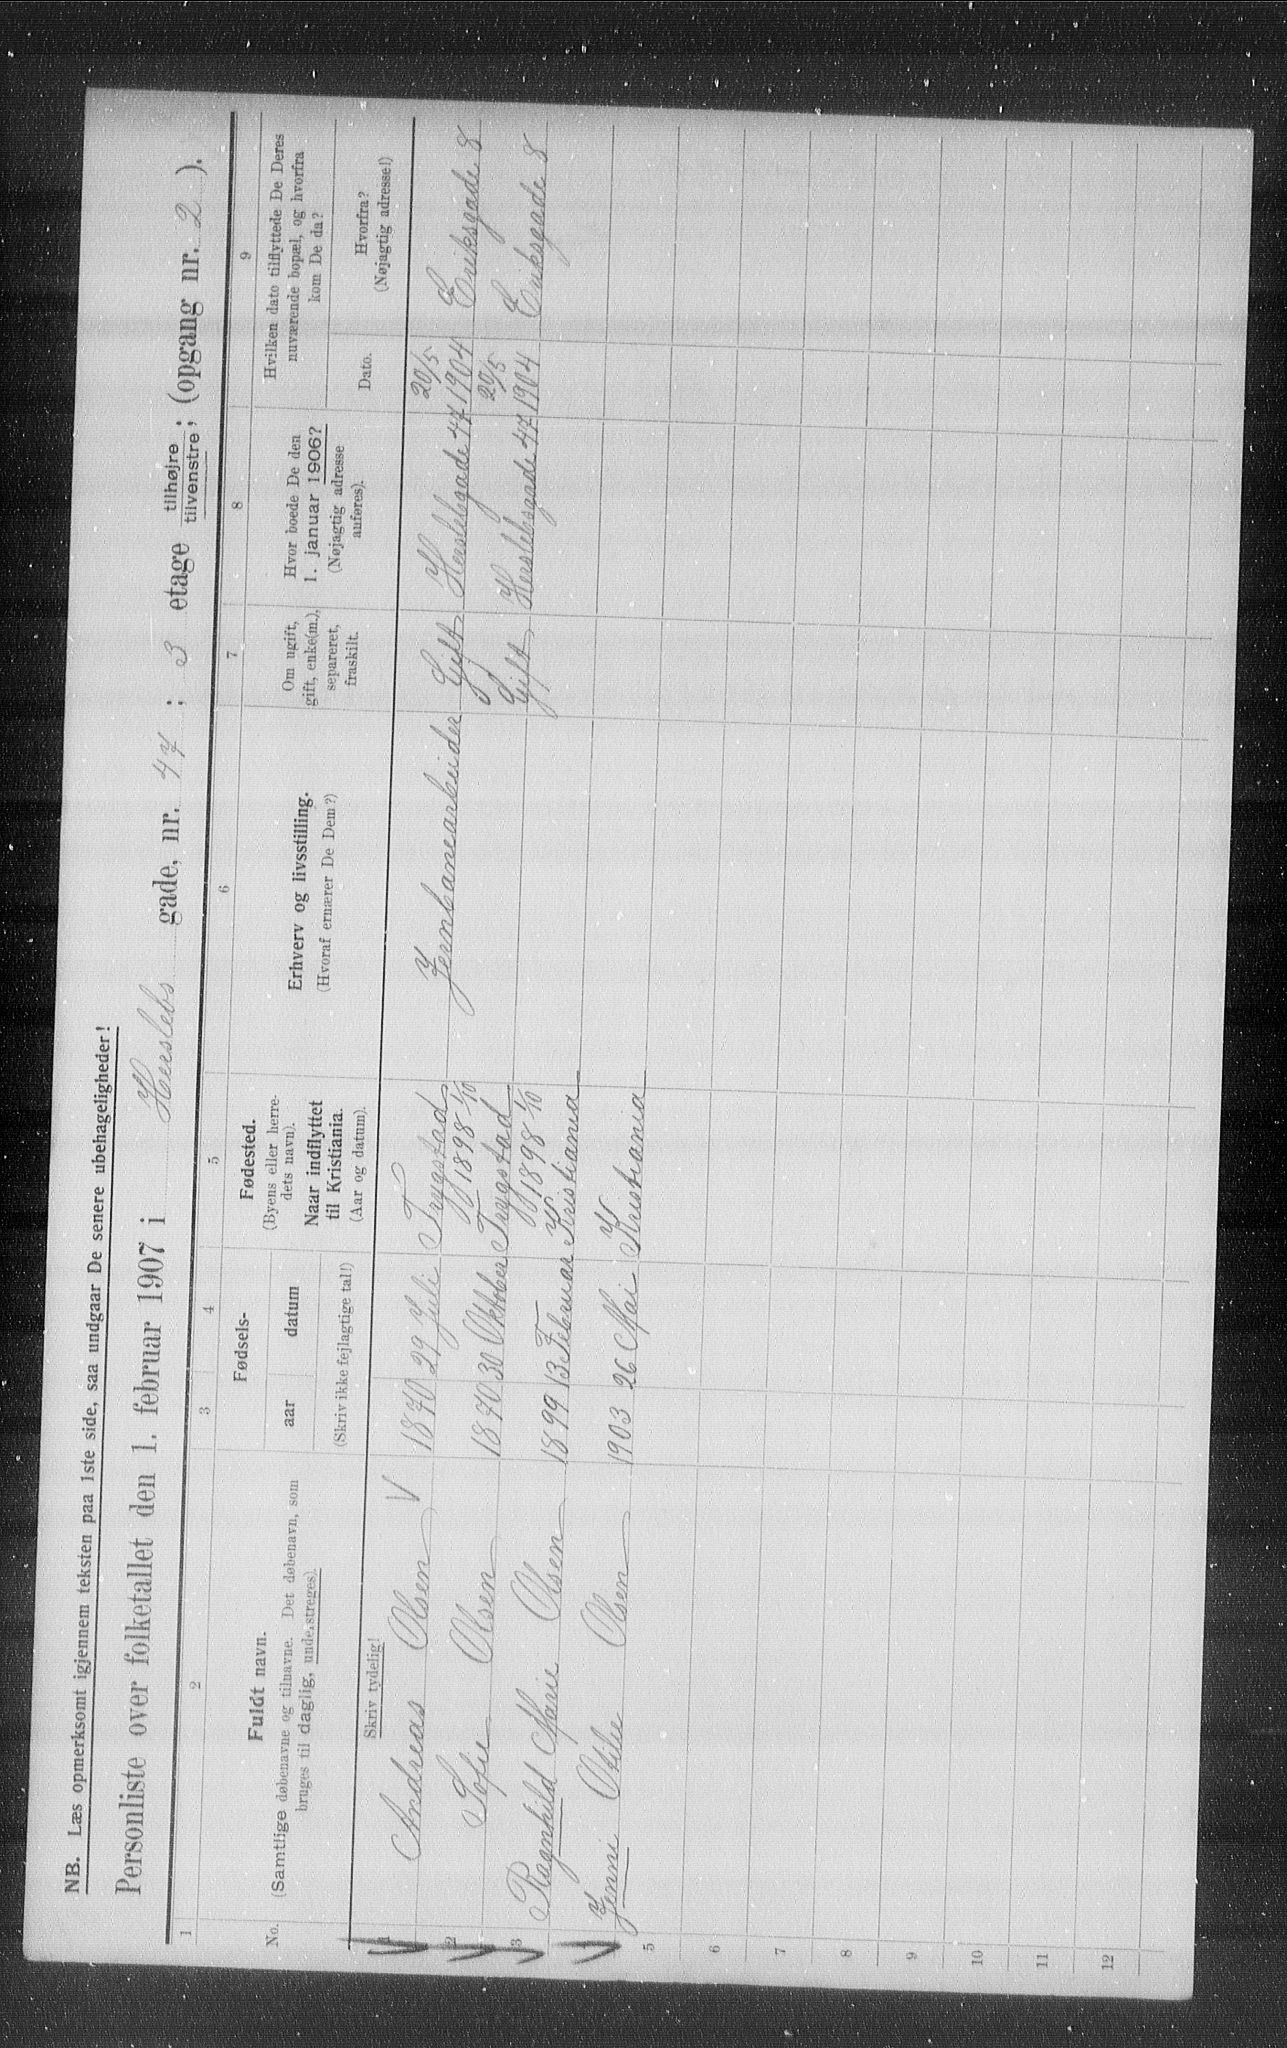 NB. Læs opmerksomt igjennem teksten paa 1ste side, saa undgaar De senere ubehageligheder!
Personliste over folketallet den 1. februar 1907 i Herslebs gade, nr. 47; 3 etage tilhøjre tilvenstre; (opgang nr. 2).
1 2 3 4 5 6 7 8 9
No.
Fuldt navn.
(Samtlige døbenavne og tilnavne. Det døbenavn, som
bruges til daglig, understreges).
Fødsels-
aar datum
(Skriv ikke fejlagtige tal!)
Fødested.
(Byens eller herre-
dets navn).
Naar indflyttet
til Kristiania.
(Aar og datum).
Erhverv og livsstilling.
(Hvoraf ernærer De Dem?)
Om ugift,
gift, enke(m.),
separeret,
fraskilt.
Hvor boede De den
1. januar 1906?
(Nøjagtig adresse
anføres).
Hvilken dato tilflyttede De Deres
nuværende bopæl, og hvorfra
kom De da?
Dato.
Hvorfra?
(Nøjagtig adresse!)
Skriv tydelig!
1 Andreas Olsen V 1870 29 Juli Trygstad 1898 1/10 Jernbanearbeider Gift Herslebsgade 47 20/5 1904 Eriksgade 8
2 Sofie Olsen 1870 30 Oktober Trygstad 1898 1/10 Gift Herslebsgade 47 20/5 1904 Eriksgade 8
3 Ragnhild Marie Olsen 1899 13 Februar Kristiania
Jenni Otilie Olsen 1903 26 Mai Kristiania
5
6
7
8
9
10
11
12